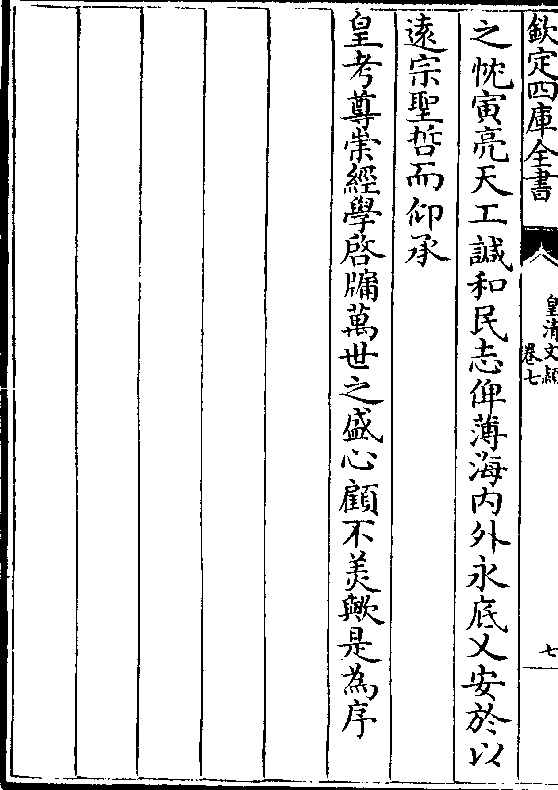 欽定四庫全書
皇清文穎
卷七
七
之忱寅亮天工諴和民志俾薄海内外永底乂安於以
遠宗聖哲而仰承
皇考尊崇經學啓牖萬世之盛心顧不美歟是為序